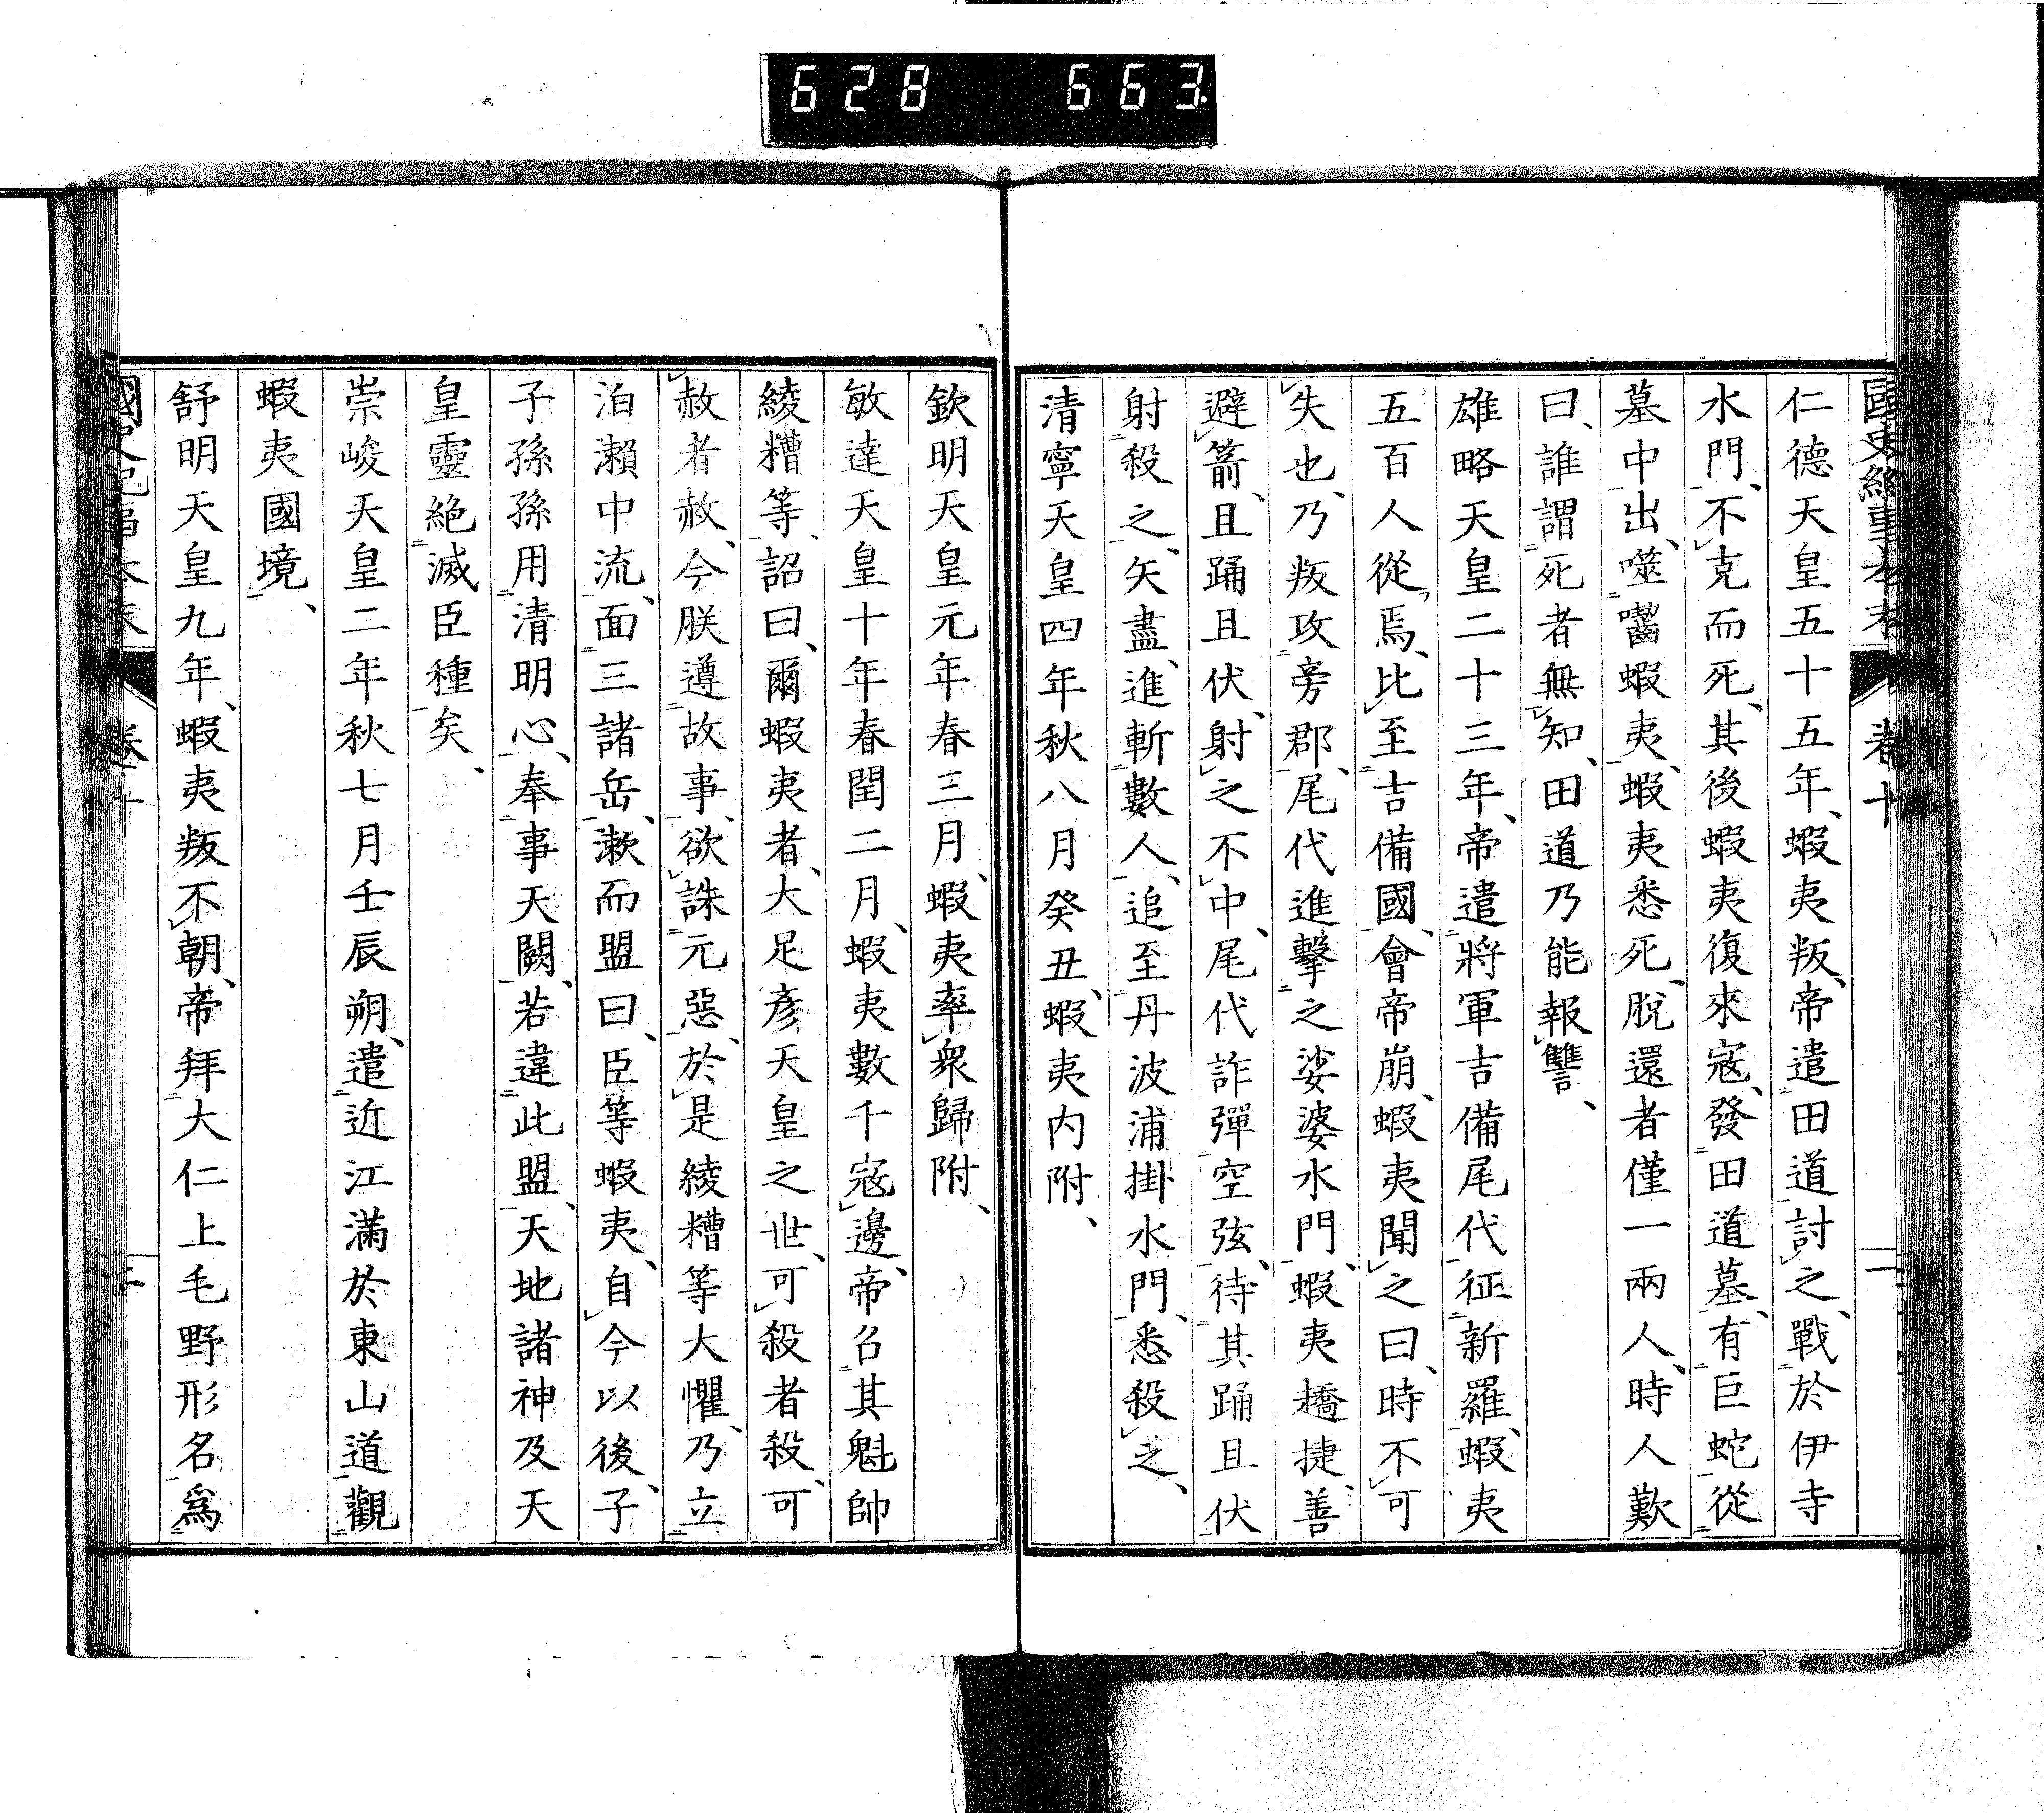 628 663
國史紀事本末 卷十 二
仁德天皇五十五年、蝦夷叛、帝遣田道討之、戰於伊寺
水門、不克而死、其後蝦夷復來寇、發田道墓、有巨蛇從
墓中出、噬嚙蝦夷、蝦夷悉死、脫還者僅一兩人、時人歎
曰、誰謂死者無知、田道乃能報讐、
雄略天皇二十三年、帝遣將軍吉備尾代征新羅、蝦夷
五百人從焉、比至吉備國、會帝崩、蝦夷聞之曰、時不可
失也、乃叛攻旁郡、尾代進擊之娑婆水門、蝦夷趫捷、善
避箭、且踊且伏、射之不中、尾代詐彈空弦、待其踊且伏
射殺之、矢盡、進斬數人、追至丹波浦掛水門、悉殺之、
清寧天皇四年秋八月癸丑、蝦夷内附、
欽明天皇元年春三月、蝦夷率衆歸附、
敏達天皇十年春閏二月、蝦夷數千寇邊、帝召其魁帥
綾糟等、詔曰、爾蝦夷者、大足彥天皇之世、可殺者殺、可
赦者赦、今朕遵故事、欲誅元惡、於是綾糟等大懼、乃立
泊瀨中流、面三諸岳、漱而盟曰、臣等蝦夷、自今以後、子
子孫孫用清明心、奉事天闕、若違此盟、天地諸神及天
皇靈絕滅臣種矣、
崇峻天皇二年秋七月壬辰朔、遣近江滿於東山道觀
蝦夷國境、
舒明天皇九年、蝦夷叛不朝、帝拜大仁上毛野形名爲